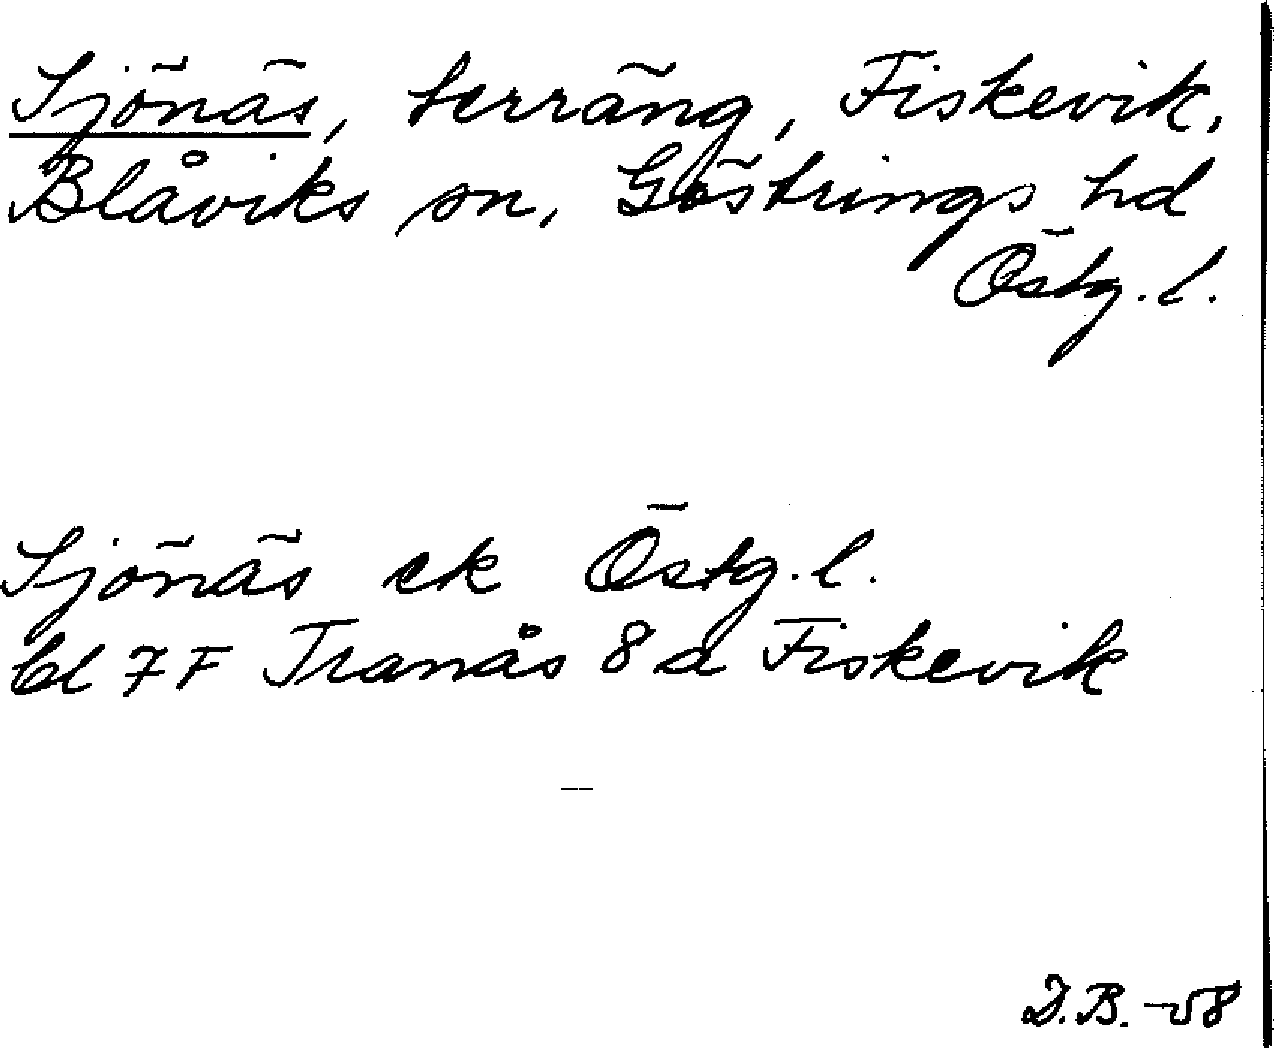 Sjönäs, terräng, Fiskevik,
Blåviks sn, Göstrings hd
Östg.l.
Sjönäs ek Östg.l.
bl 7F Tranås 8a Fiskevik
—
D.B. -58